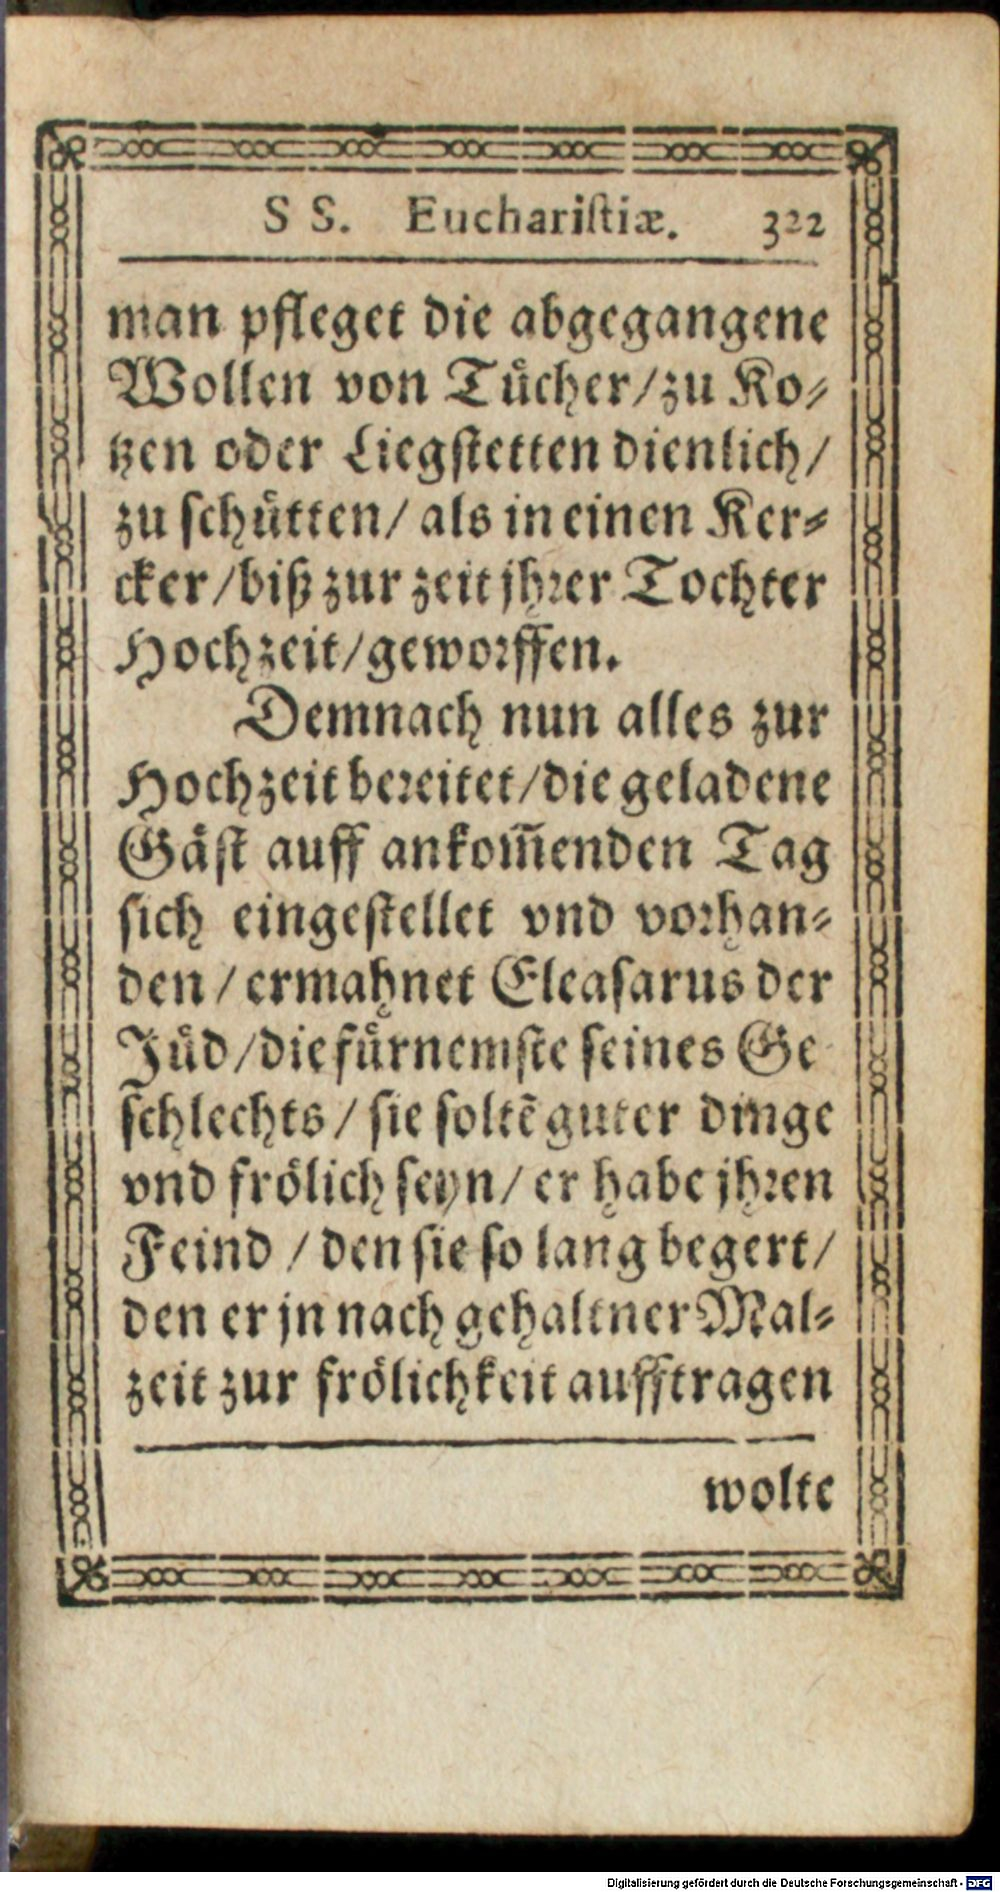 S S. Euchariſtiæ. 322
man pfleget die abgegangene
Wollen von Tücher/zu Ko⸗
tzen oder Liegſtetten dienlich/
zu ſchütten/ als in einen Ker⸗
cker/biß zur zeit jhrer Tochter
Hochzeit/geworffen.
Demnach nun alles zur
Hochzeit bereitet/die geladene
Gäſt auff ankom̃enden Tag
ſich eingeſtellet vnd vorhan⸗
den/ ermahnet Eleaſarus der
Jüd/die fürnemſte ſeines Ge
ſchlechts/ ſie ſoltẽ guter dinge
vnd frölich ſeyn/ er habe jhren
Feind/ den ſie ſo lang begert/
den er jn nach gehaltner Mal⸗
zeit zur frölichkeit aufftragen
wolte
Digitalisierung gefördert durch die Deutsche Forschungsgemeinschaft - DFG